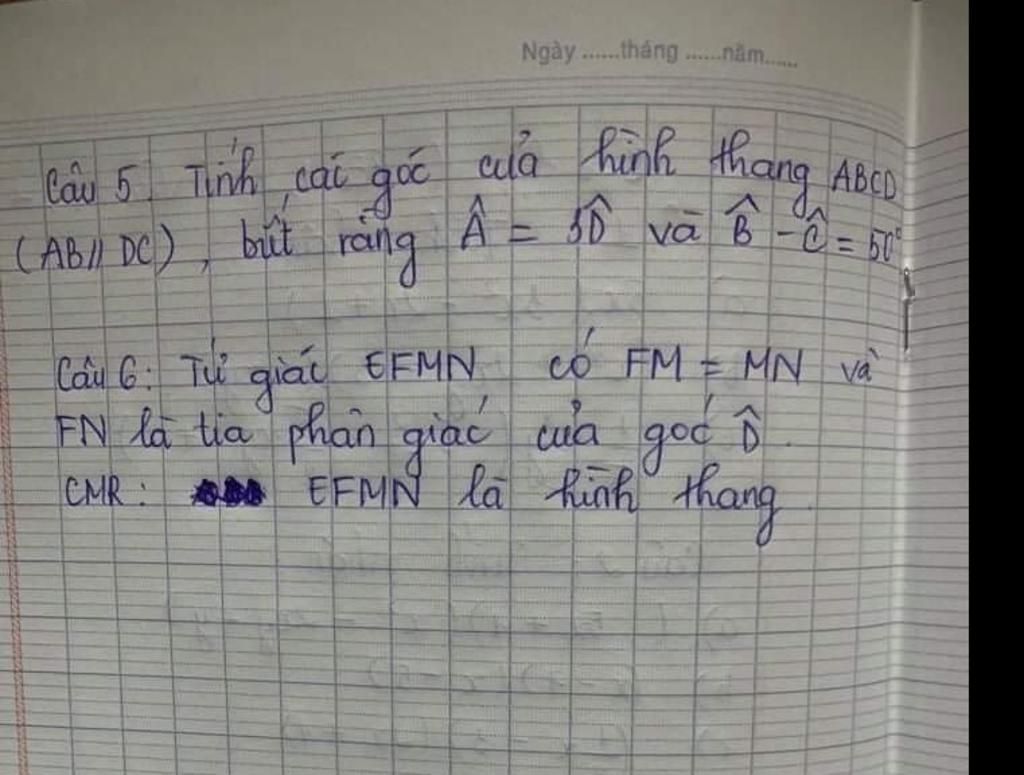 Ngày ......tháng ......năm......
Câu 5. Tính các góc của hình thang ABCD
(AB// DC), biết rằng Â = 3D̂ và B̂ - Ĉ = 50°
Câu 6: Tứ giác EFMN có FM = MN và
FN là tia phân giác của góc D̂.
CMR: EFMN là hình thang